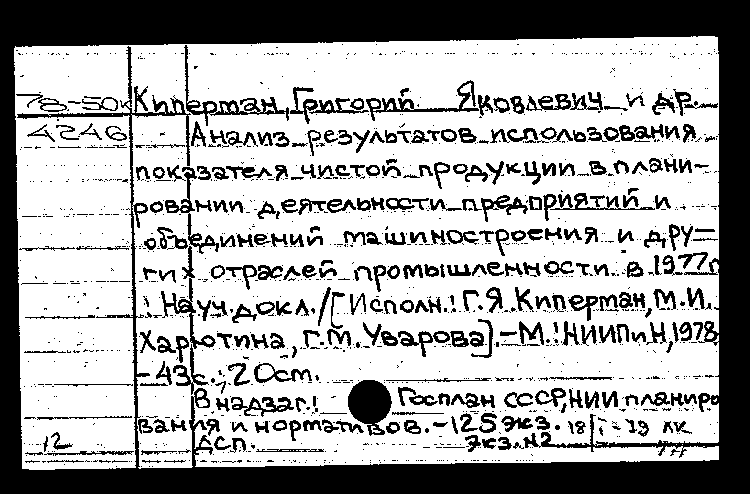 78-50к Киперман, Григорий Яковлевич и др.
4246 Анализ результатов использования
показателя чистой продукции в плани-
ровании деятельности предприятий и
объединений машиностроения и дру-
гих отраслей промышленности в 1977г
: Науч. докл. / [Исполн.: Г.Я. Киперман, М.И.
Харютина, Г.М. Уварова]. - М.: НИИПиН, 1978
- 43 с.; 20 см.
В надзаг.: Госплан СССР, НИИ планиро
вания и нормативов. - 125 экз.
12 ДСП. Экз. №2